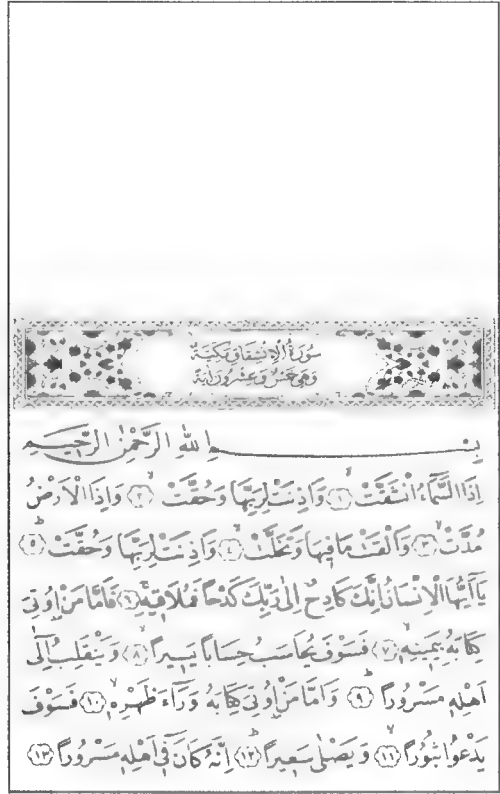 سُورَةُ الْاِنْشِقَاقِ مَكِّيَّةٌ
وَهِيَ خَمْسٌ وَعِشْرُونَ اٰيَةً
بِسْــــــــمِ اللّٰهِ الرَّحْمٰنِ الرَّحٖيمِ
اِذَا السَّمَٓاءُ انْشَقَّتْۙ ﴿١﴾ وَاَذِنَتْ لِرَبِّهَا وَحُقَّتْۙ ﴿٢﴾ وَاِذَا الْاَرْضُ
مُدَّتْۙ ﴿٣﴾ وَاَلْقَتْ مَا فٖيهَا وَتَخَلَّتْۙ ﴿٤﴾ وَاَذِنَتْ لِرَبِّهَا وَحُقَّتْۜ ﴿٥﴾
يَٓا اَيُّهَا الْاِنْسَانُ اِنَّكَ كَادِحٌ اِلٰى رَبِّكَ كَدْحاً فَمُلَاقٖيهِۚ ﴿٦﴾ فَاَمَّا مَنْ اُو۫تِيَ
كِتَابَهُ بِيَمٖينِهٖۙ ﴿٧﴾ فَسَوْفَ يُحَاسَبُ حِسَاباً يَسٖيراًۙ ﴿٨﴾ وَيَنْقَلِبُ اِلٰٓى
اَهْلِهٖ مَسْرُوراًۜ ﴿٩﴾ وَاَمَّا مَنْ اُو۫تِيَ كِتَابَهُ وَرَٓاءَ ظَهْرِهٖۙ ﴿١٠﴾ فَسَوْفَ
يَدْعُوا ثُبُوراًۙ ﴿١١﴾ وَيَصْلٰى سَعٖيراًۜ ﴿١٢﴾ اِنَّهُ كَانَ فٖٓي اَهْلِهٖ مَسْرُوراًۜ ﴿١٣﴾